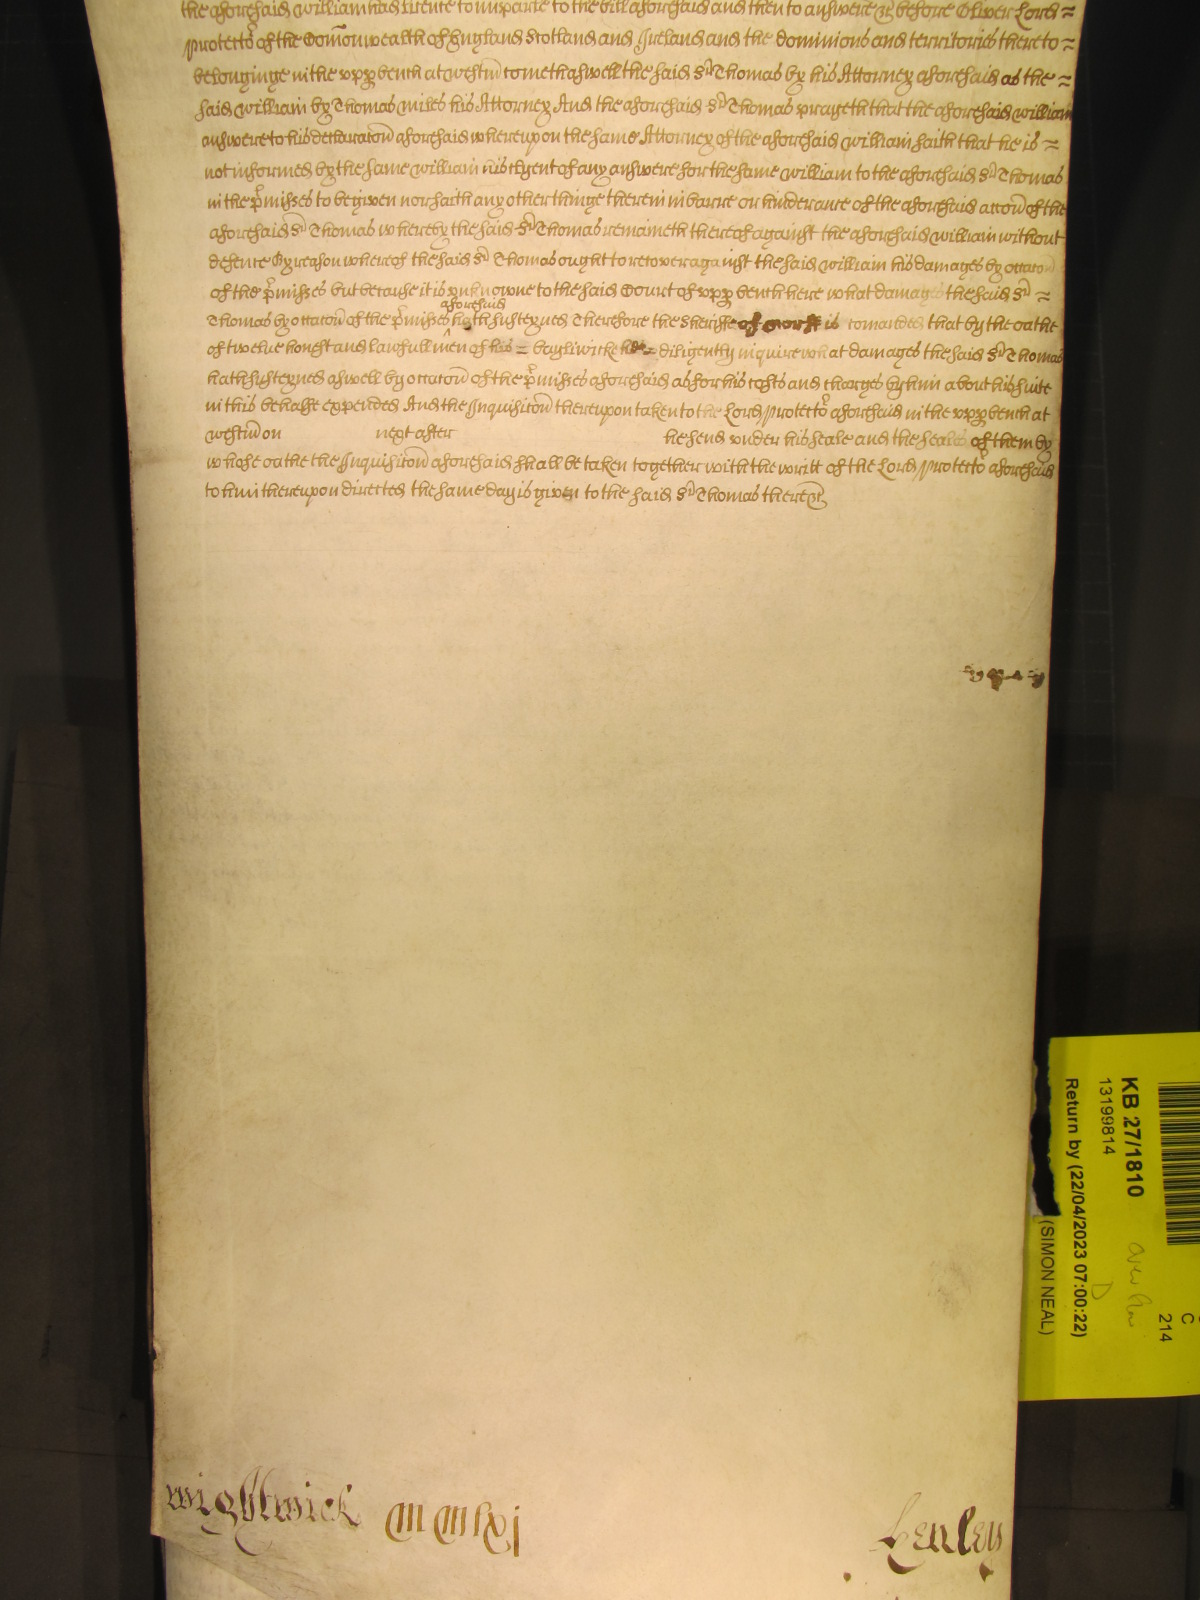 the aforesaid William had licence to imparle to the bill aforesaid and then to answere &c before Oliver Lord
Protector of the Comōnwealth of England Scotland and Ireland and the dominions and territories thereto
belonginge in the upp bench at westm̄ cometh aswell the said Sr Thomas by his Attorney aforesaid as the
said William by Thomas Miles his Attorney And the aforesaid Sr Thomas prayeth that the aforesaid William
answere to his declaracōn aforesaid whereupon the same Attorney of the aforesaid William saith that he is
not informed by the same William his Clyent of any answere for the same William to the aforesaid Sr Thomas
in the p̄misses to be given nor saith any other thinge therein in barre or hinderance of the aforesaid accōn of the
aforesaid Sr Thomas whereby the said Sr Thomas remaineth thereof against the aforesaid William without
defence By reason whereof the said Sr Thomas ought to recover against the said William his damages by occacōn
of the p̄misses but because it is unknowne to the said Court of upp bench here what damages the said Sr
Thomas by occacōn of the p̄misses aforesaid hath susteyned Therefore the Sheriffe is comanded that by the oathe
of twelve honest and lawfull men of his baylliwicke diligently inquire what damages the said Sr Thomas
hath susteyned aswell by occacōn of the p̄misses aforesaid as for his costs and charges by him about his suite
in this behalfe expended And the Inquisicōn thereupon taken to the Lord Protector aforesaid in the upp bench at
westm̄ on next after he send under his seale and the seales of them by
whose oathe the Inquisicōn aforesaid shall be taken together with the writt of the Lord Protector aforesaid
to him thereupon directed the same day is given to the said Sr Thomas there &c
Wightwick
Henley
KB 27/1810
13199814
Return by (22/04/2023 07:00:22)
(SIMON NEAL)
D
C
214